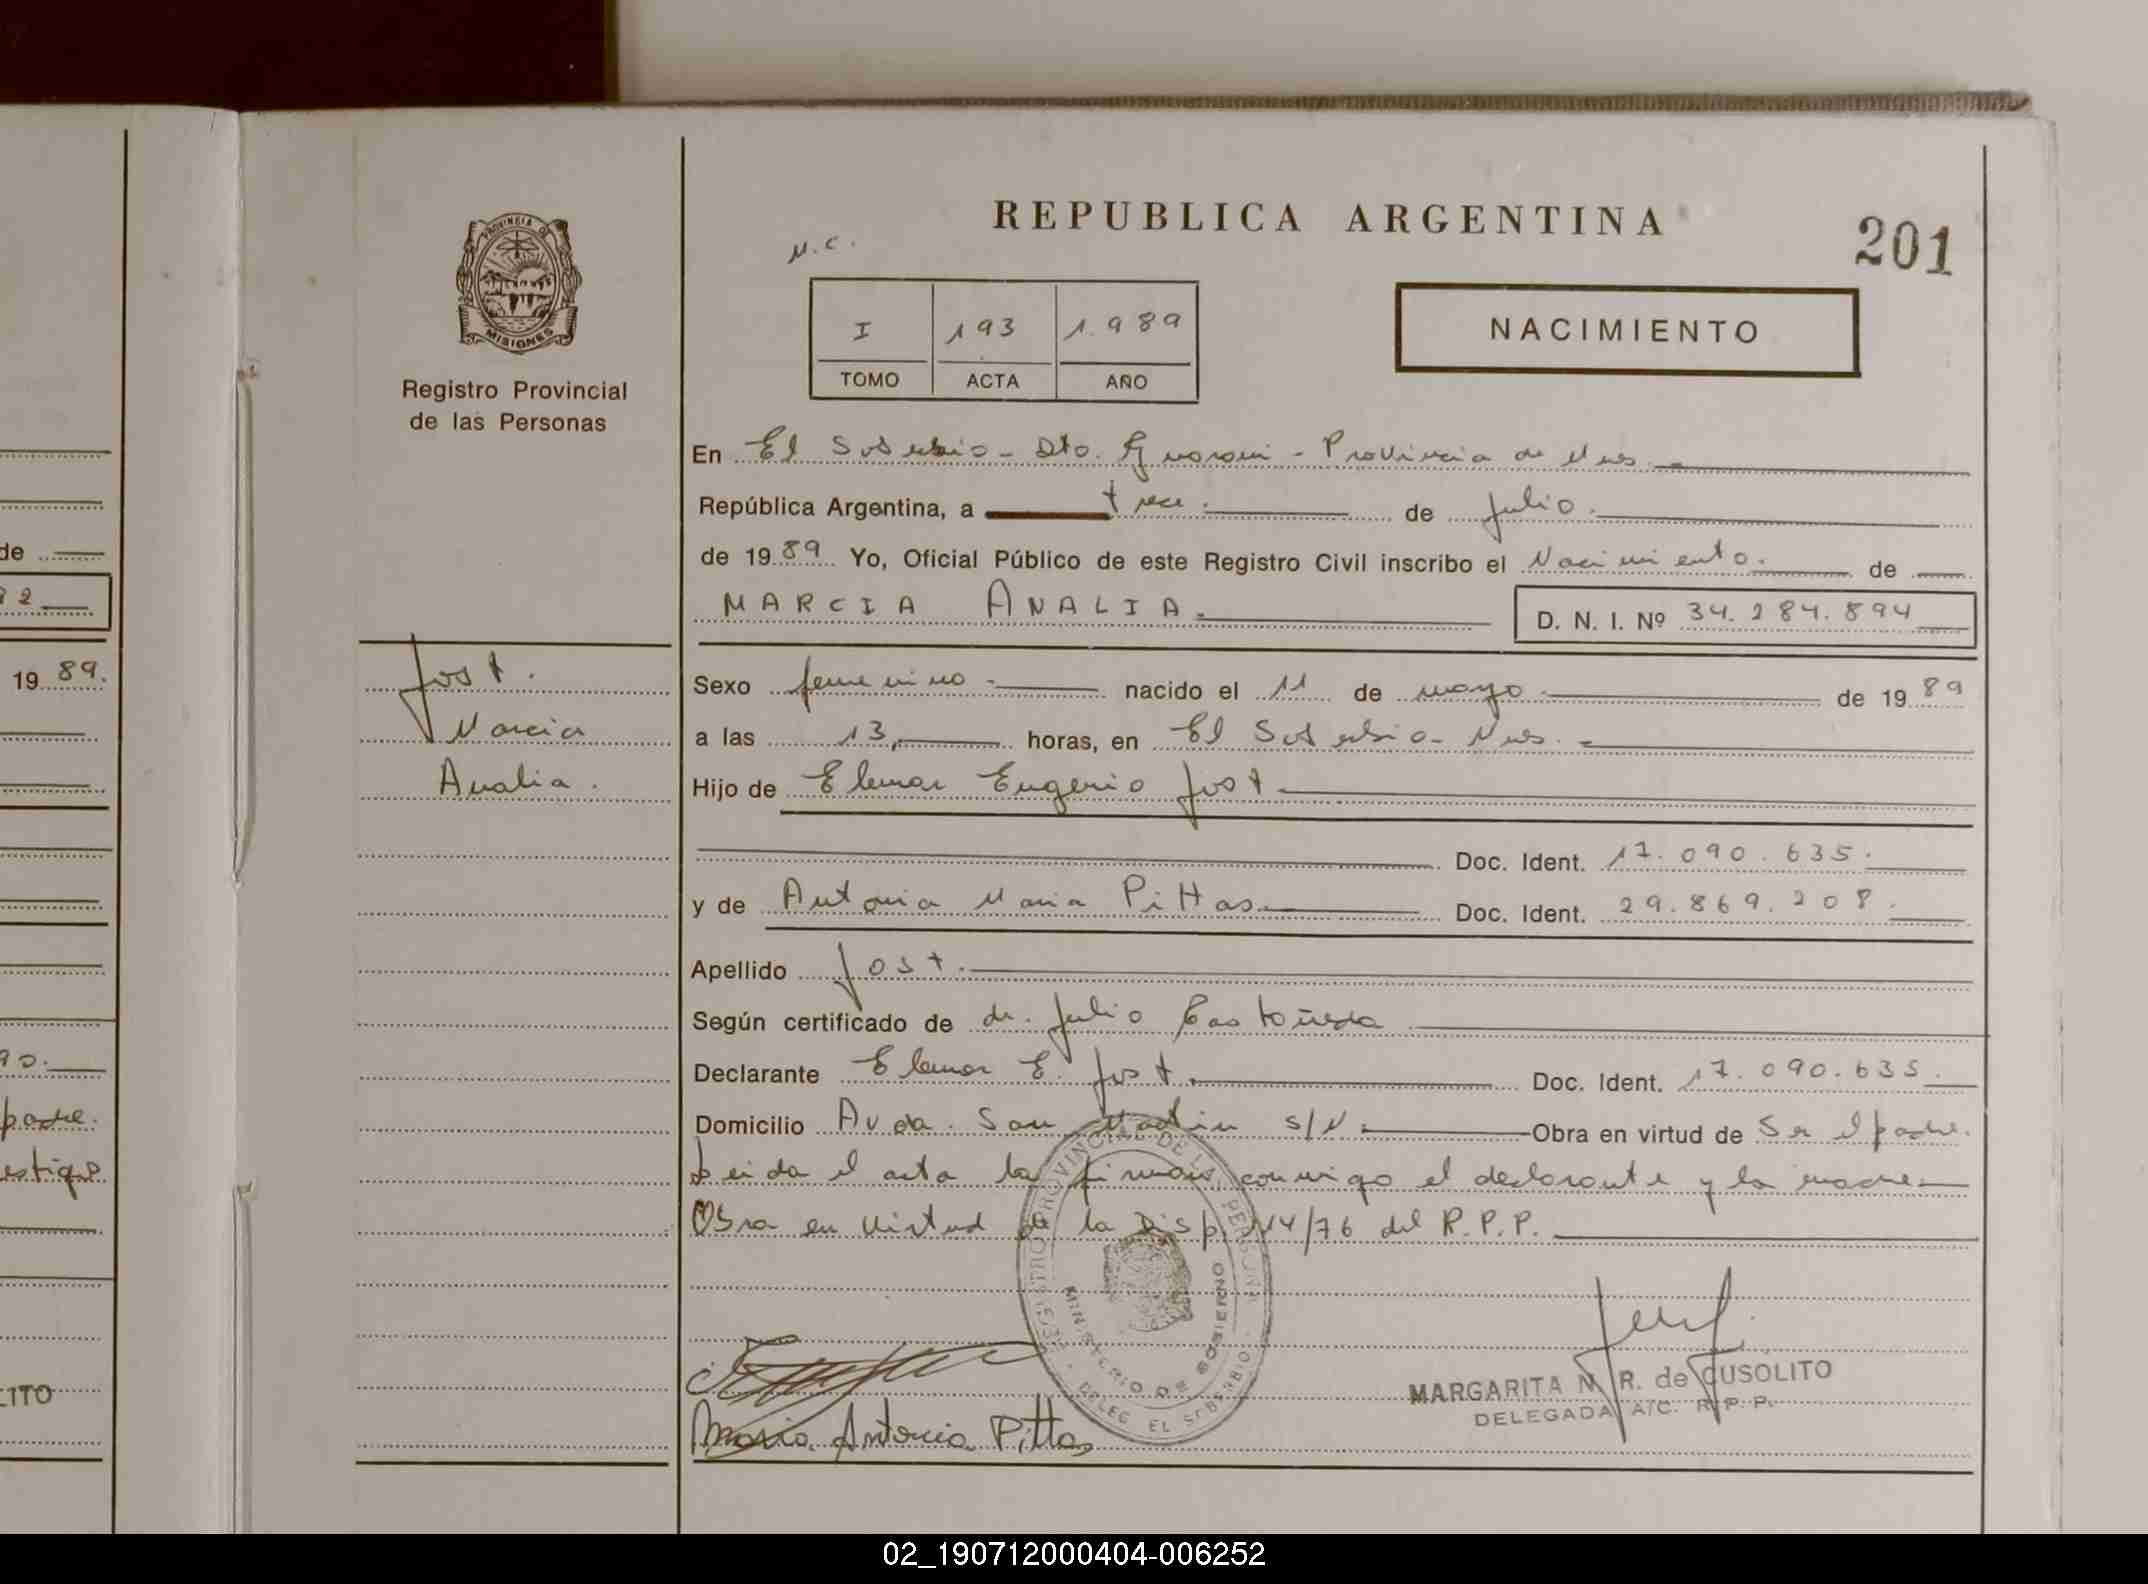 REPUBLICA ARGENTINA
201
M.C.
PROVINCIA DE
MISIONES
Registro Provincial
de las Personas
I 193 1.989
TOMO ACTA AÑO
NACIMIENTO
En El Soberbio - Dto. Guarani - Provincia de Mnes
República Argentina, a trece de Julio.
de 1989 Yo, Oficial Público de este Registro Civil inscribo el Nacimiento. de
MARCIA ANALIA.
D. N. I. Nº 34.284.894
Jost.
Marcia
Analia.
Sexo femenino - nacido el 11 de mayo de 1989
a las 13, horas, en El Soberbio - Mnes.
Hijo de Elemar Eugenio Jost
Doc. Ident. 17.090.635.
y de Antonia Maria Pittas. Doc. Ident. 29.869.208.
Apellido Jost.
Según certificado de dr. Julio Castañeda
Declarante Elemar E. Jost. Doc. Ident. 17.090.635.
Domicilio Avda. San Martin s/N. Obra en virtud de Ser el padre.
Leida el acta la firman conmigo el declarante y la madre
Obra en virtud de la Disp. 114/76 del R.P.P.
REGISTRO PROVINCIAL DE LAS PERSONAS
MINISTERIO DE GOBIERNO
DELEG. EL SOBERBIO
Maria Antonia Pittas
MARGARITA N. R. de CUSOLITO
DELEGADA A/C. R. P. P.
de
92
1989.
90.
padre.
estigo
LITO
02_190712000404-006252